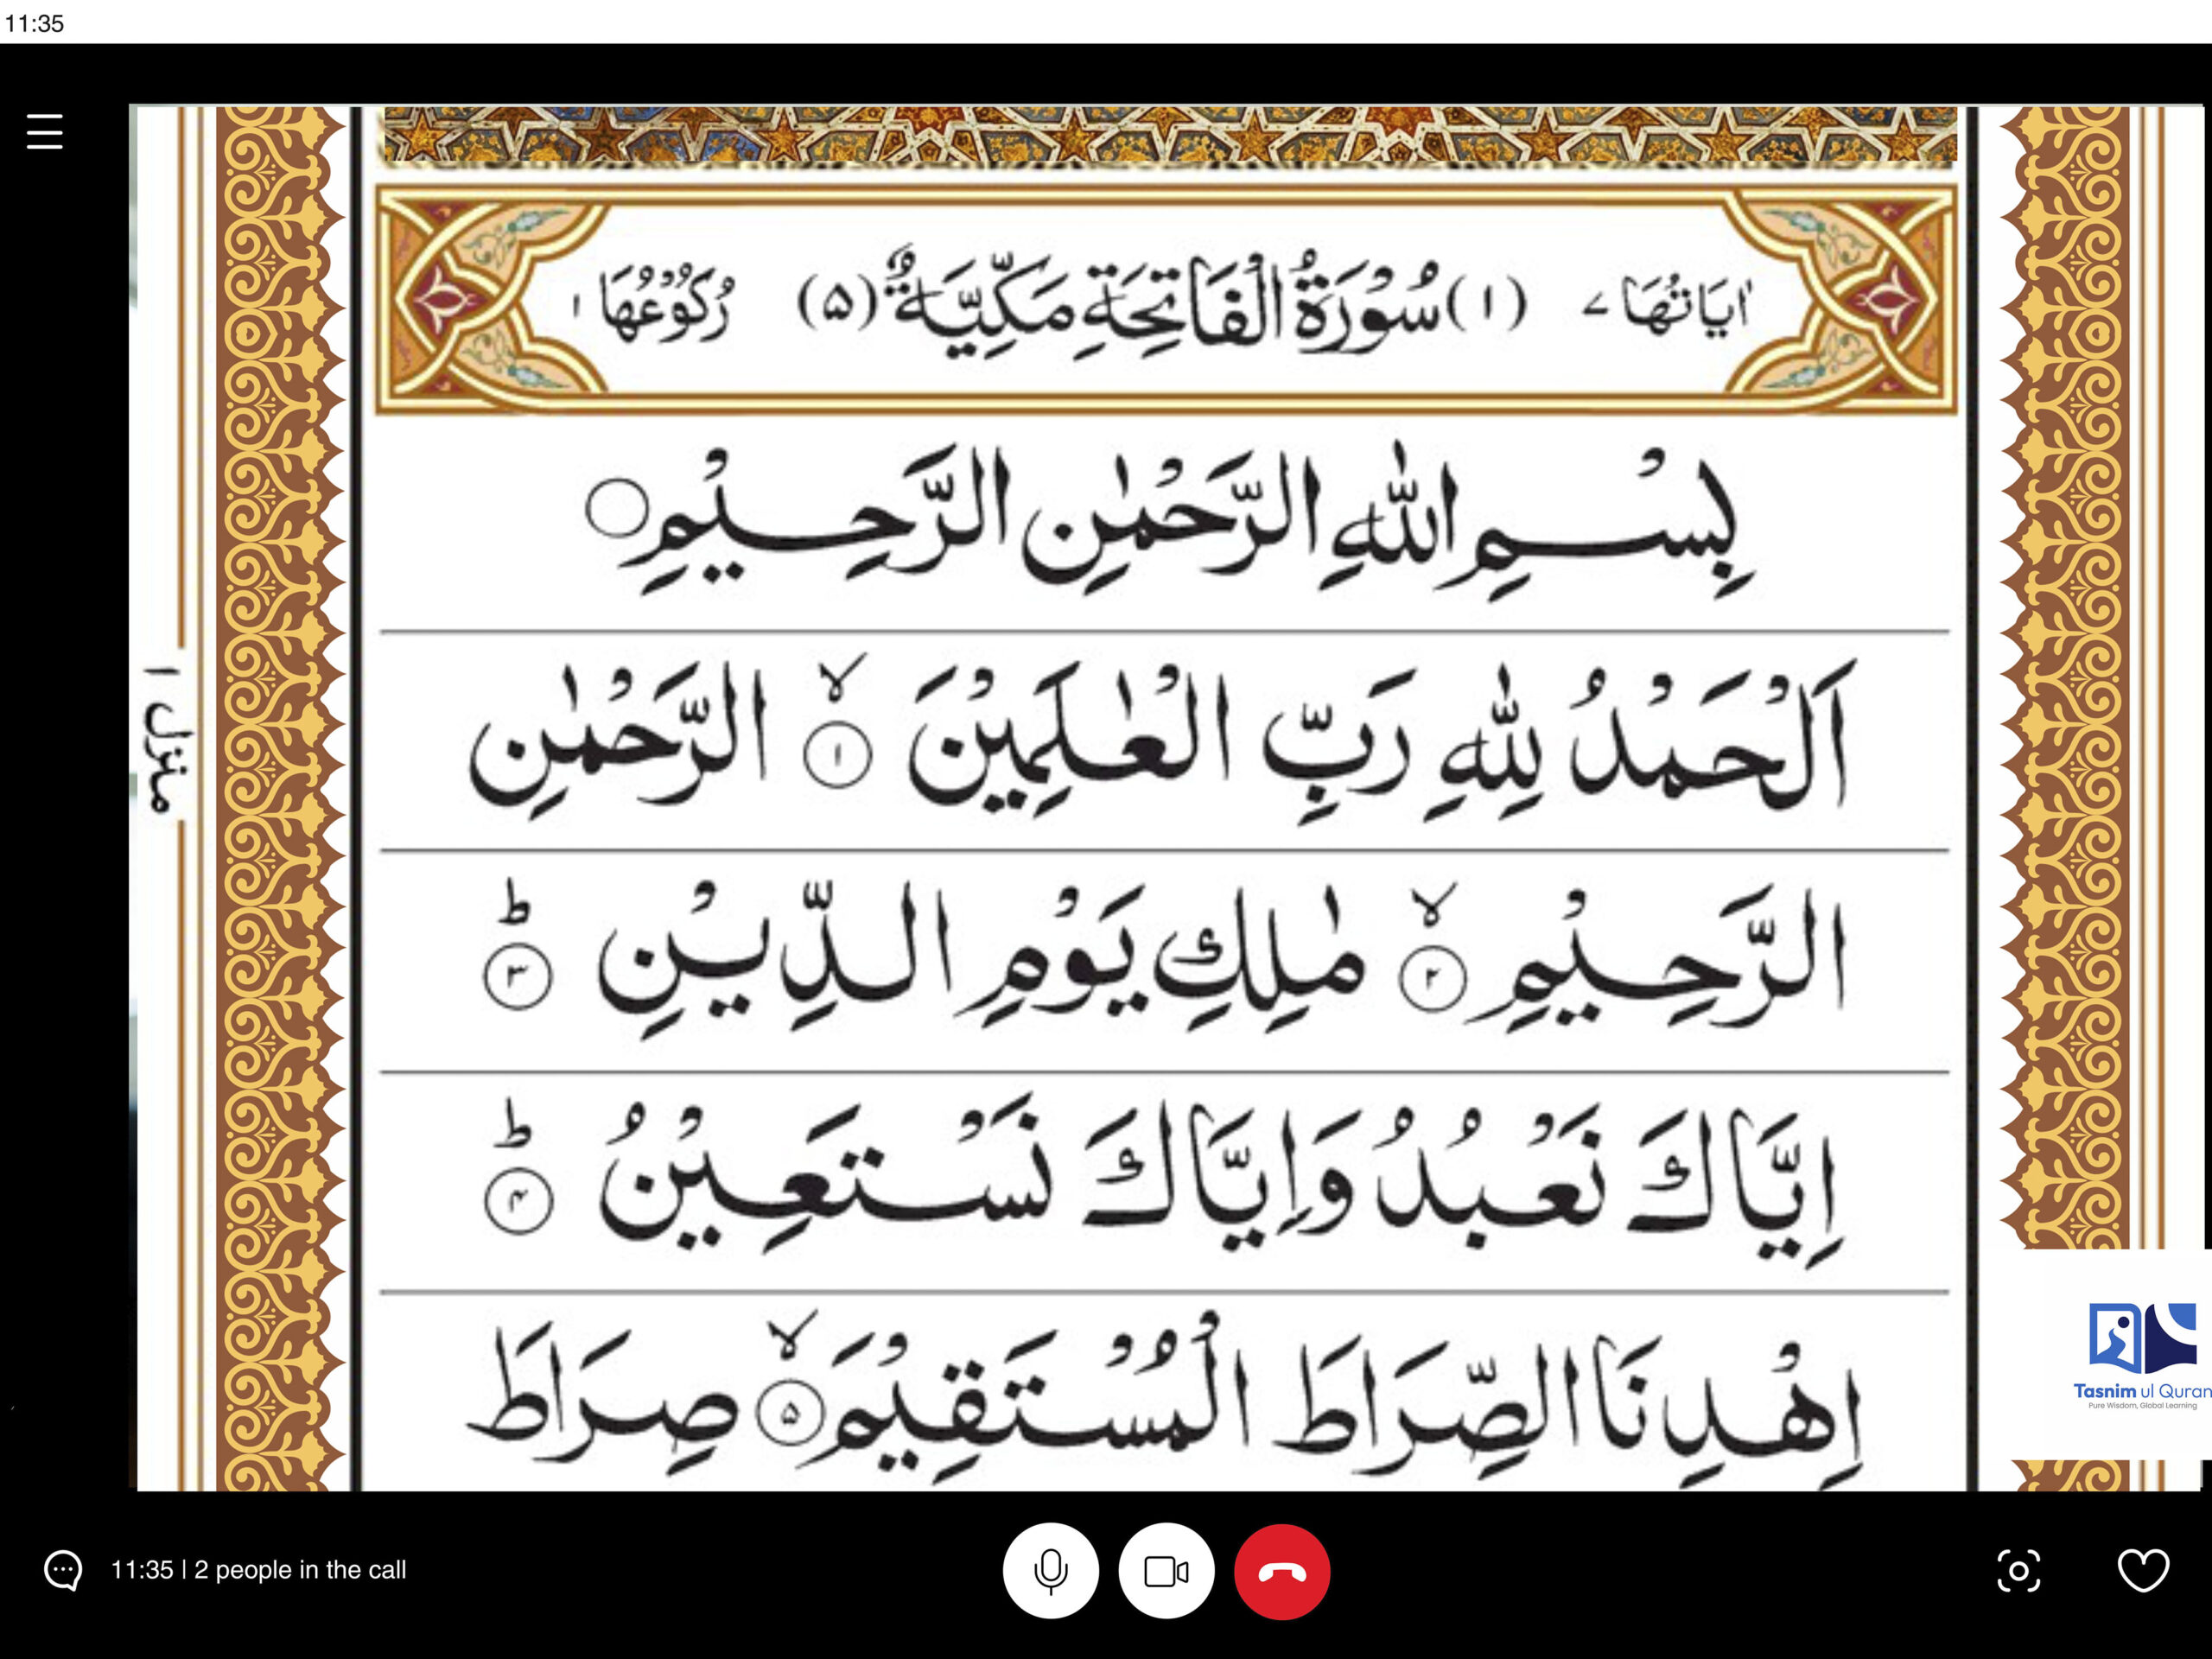 11:35
اٰيَاتُهَا ٧ (١) سُوْرَةُ الْفَاتِحَةِ مَكِّيَّةٌ (٥) رُكُوْعُهَا ١
بِسْمِ اللّٰهِ الرَّحْمٰنِ الرَّحِيْمِ
اَلْحَمْدُ لِلّٰهِ رَبِّ الْعٰلَمِيْنَ ۙ ١ الرَّحْمٰنِ
الرَّحِيْمِ ۙ ٢ مٰلِكِ يَوْمِ الدِّيْنِ ؕ ٣
اِيَّاكَ نَعْبُدُ وَاِيَّاكَ نَسْتَعِيْنُ ؕ ۴
اِهْدِنَا الصِّرَاطَ الْمُسْتَقِيْمَ ۙ ۵ صِرَاطَ
منزل ١
Tasnim ul Quran
Pure Wisdom, Global Learning
11:35 | 2 people in the call